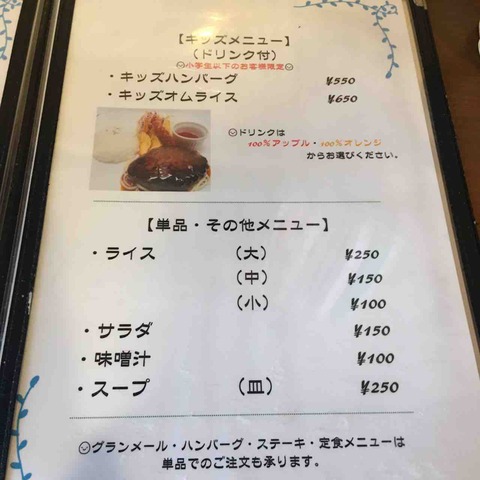 【キッズメニュー】
(ドリンク付)
小学生以下のお客様限定
・キッズハンバーグ ¥550
・キッズオムライス ¥650
ドリンクは
100%アップル・100%オレンジ
からお選びください。
【単品・その他メニュー】
・ライス (大) ¥250
(中) ¥150
(小) ¥100
・サラダ ¥150
・味噌汁 ¥100
・スープ (皿) ¥250
グランメール・ハンバーグ・ステーキ・定食メニューは
単品でのご注文も承ります。